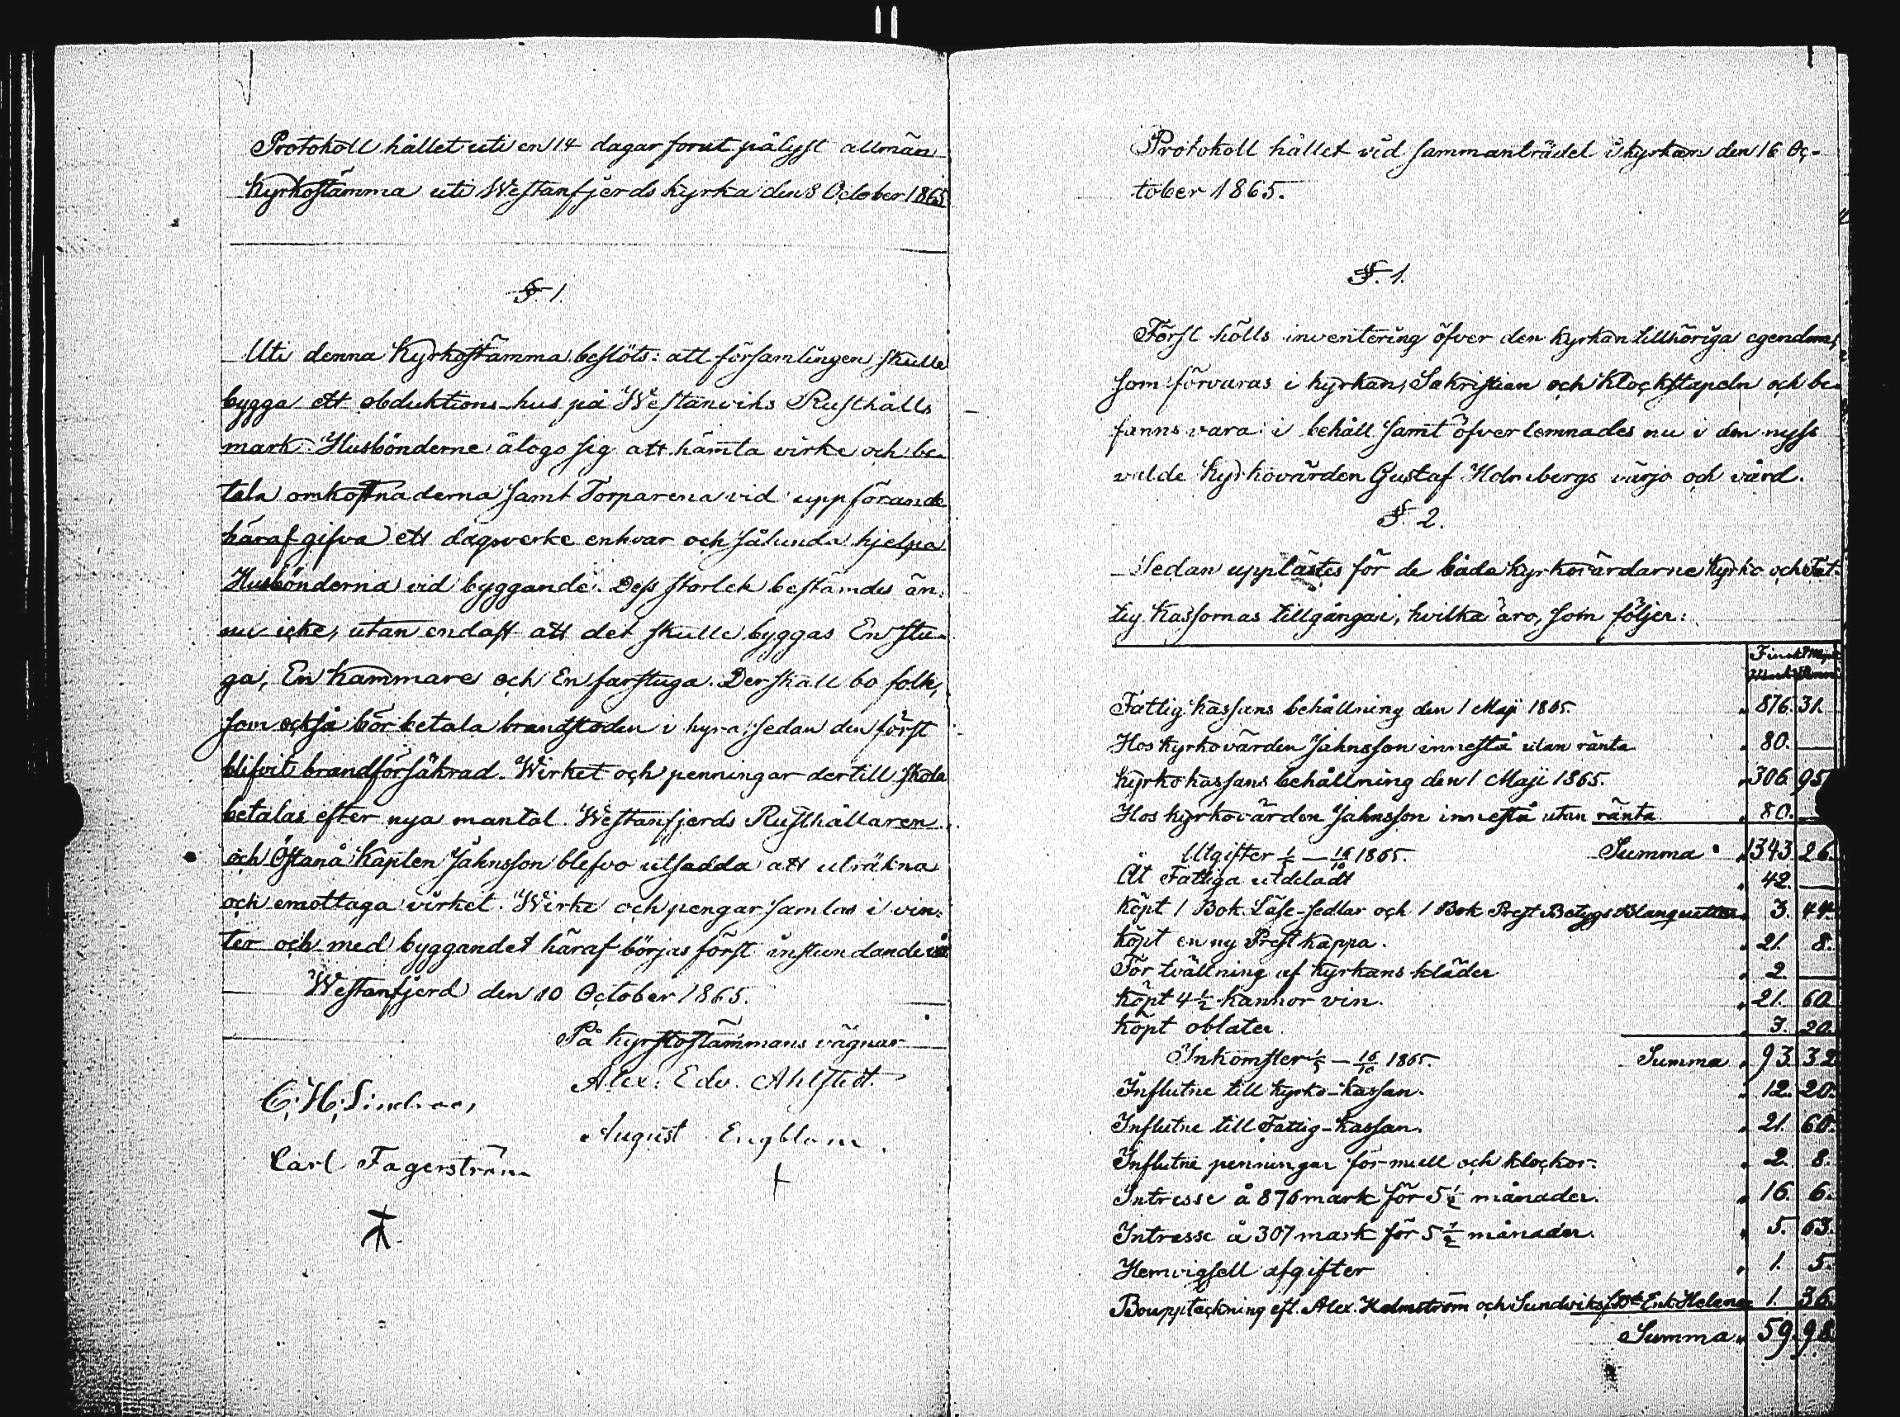 Protokoll hållet uti en 14 dagar forut pålyst allmän
Kyrkostämma uti Westanfjerds kyrka den 8 October 1865
§ 1.
Uti denna Kyrkostämma beslöts: att församlingen skulle
bygga ett obduktions-hus på Westanviks Rusthålls
mark. Husbönderne ålogo sig att hämta virke och be-
tala omkostnaderna samt Torparena vid uppförande
häraf gifva ett dagsverke enhvar och sålunda hjelpa
Husbönderna vid byggande. Dess storlek bestämdes än-
nu icke, utan endast att det skulle byggas En stu-
ga, En kammare och En farstuga. Der skall bo folk,
som också bör betala brandstoden i hyra, sedan den först
blifvit brandförsäkrad. Wirket och penningar dertill skola
betalas efter nya mantal. Westanfjerds Rusthållaren
och Östanå Kapten Jahnsson blefvo utsedda att uträkna
och emottaga virket. Wirke och pengar samlas i vin-
ter och med byggandet häraf börjas först instundande vår
Westanfjerd den 10 October 1865.
På Kyrkostämmans vägnar
Alex. Edv. Ahlstedt.
C. H. Lindroos,
August Engblom
Carl Fagerström
Protokoll hållet vid sammanträdet i kyrkan den 16 Oc-
tober 1865.
§. 1.
Först hölls inventering öfver den kyrkan tillhöriga egendom,
som förvaras i kyrkan, Sakristian och Klockstapeln och be-
fanns vara i behåll samt öfverlemnades nu i den nyss
valde Kyrkovärden Gustaf Holmbergs värjo och vård.
§. 2.
Sedan upplästes för de båda Kyrkovärdarne Kyrko och Fat-
tig Kassornas tillgångar, hvilka äro, som följer:
Finska Mynt
Mark Penni
Fattig kassans behållning den 1 Maji 1865. " 876. 31.
Hos Kyrkovärden Jahnsson innestå utan ränta " 80. —
Kyrko kassans behållning den 1 Maji 1865. " 306. 95
Hos Kyrkovärden Jahnsson innestå utan ränta " 80. —
Utgifter 1/5 — 16/10 1865. Summa " 1343. 26.
Åt Fattiga utdeladt " 42. —
Köpt 1 Bok Läse-sedlar och 1 Bok Prest Betygs Blanquetter " 3. 44
Köpt en ny Prest kappa. " 21. 8.
För tvättning af Kyrkans kläder " 2. —
Köpt 4 1/2 kannor vin. " 21. 60
Köpt oblater. " 3. 20.
Inkomster 1/5 — 16/10 1865. Summa " 93. 32
Influtne till Kyrko-kassan. " 12. 20.
Influtne till Fattig-Kassan. " 21. 60.
Influtne penningar för mull och klockor. " 2. 8.
Intresse å 876 mark för 5 1/2 månader. " 16. 6.
Intresse å 307 mark för 5 1/2 månader. " 5. 63.
Hemvigsell afgifter " 1. 5.
Bouppteckning eft. Alex. Holmström och Sundviks Enk. Helena " 1. 36.
Summa " 59. 98.